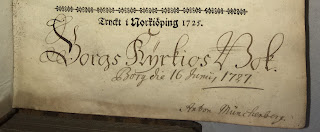 Tryckt i Norkiöping 1725.
Borgs Kyrkios Bok.
Borg die 16 Junii, 1727.
Anton Münchenberg.